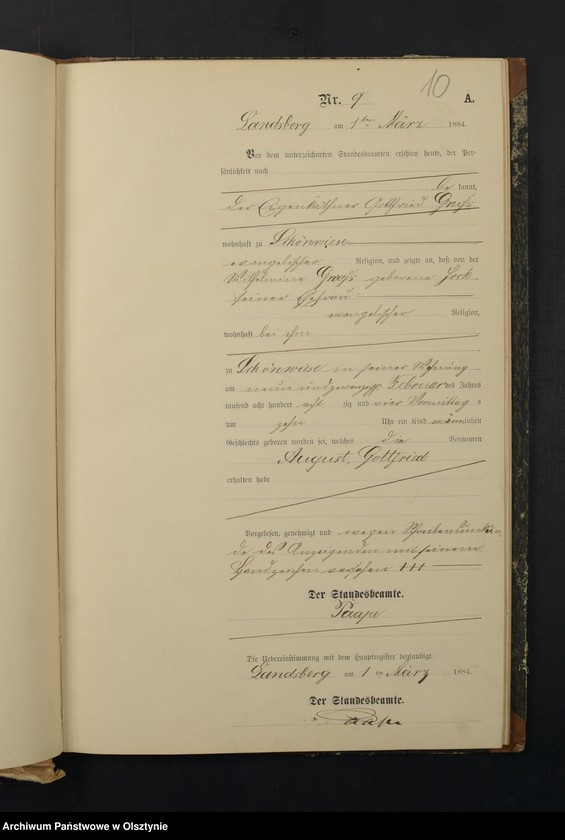 10
Nr. 9 A.
Landsberg am 1ten März 1884.
Vor dem unterzeichneten Standesbeamten erschien heute, der Per-
sönlichkeit nach
be kannt,
der Eigenkäthner Gottfried Groß
wohnhaft zu Schönwiese
evangelischer Religion, und zeigte an, daß von der
Wilhelmine Groß geborene Jock
seiner Ehefrau
evangelischer Religion,
wohnhaft bei ihm
zu Schönwiese in seiner Wohnung
am neun und zwanzigsten Februar des Jahres
tausend acht hundert acht zig und vier Vormittag s
um zehn Uhr ein Kind männlichen
Geschlechts geboren worden sei, welches die Vornamen
August, Gottfried
erhalten habe
Vorgelesen, genehmigt und wegen Schreibensunkun
de des Anzeigenden mit seinem
Handzeichen versehen +++
Der Standesbeamte.
Paape
Die Uebereinstimmung mit dem Hauptregister beglaubigt.
Landsberg am 1ten März 1884.
Der Standesbeamte.
Paape
Archiwum Państwowe w Olsztynie